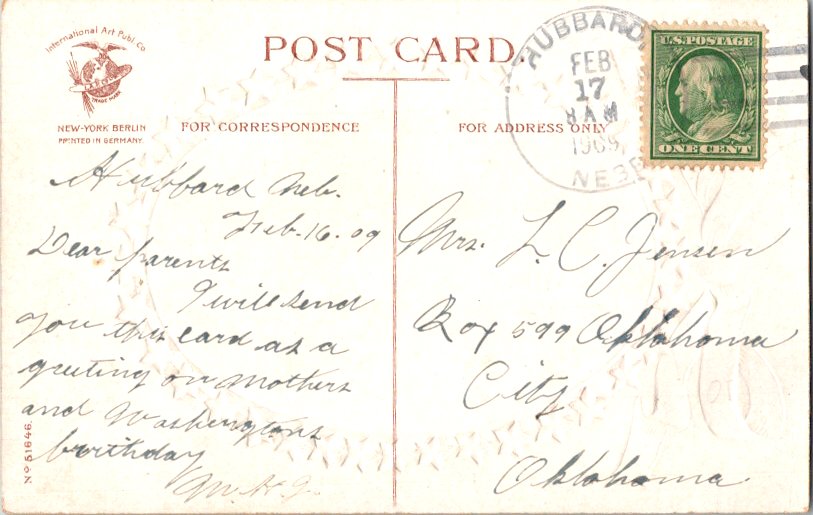 International Art Publ. Co.
TRADE MARK
NEW-YORK BERLIN
PRINTED IN GERMANY.
POST CARD.
FOR CORRESPONDENCE
FOR ADDRESS ONLY
HUBBARD
FEB
17
8 AM
1909
NEBR
U.S. POSTAGE
ONE CENT
Hubbard Neb.
Feb. 16. 09
Dear parents
I will send
you this card as a
greeting on Mothers
and Washingtons
birthday
Mrs. L. C. Jensen
Box 599 Oklahoma
City
Oklahoma
No 51646.